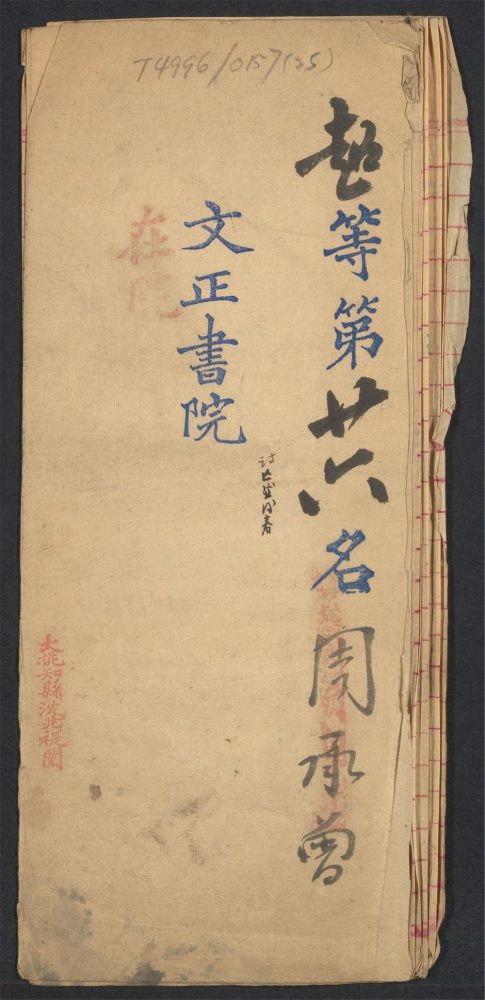 T4996/0157(25)
超等第廿六名周承曾
文正書院
在院
大挑知縣沈兆禔閱